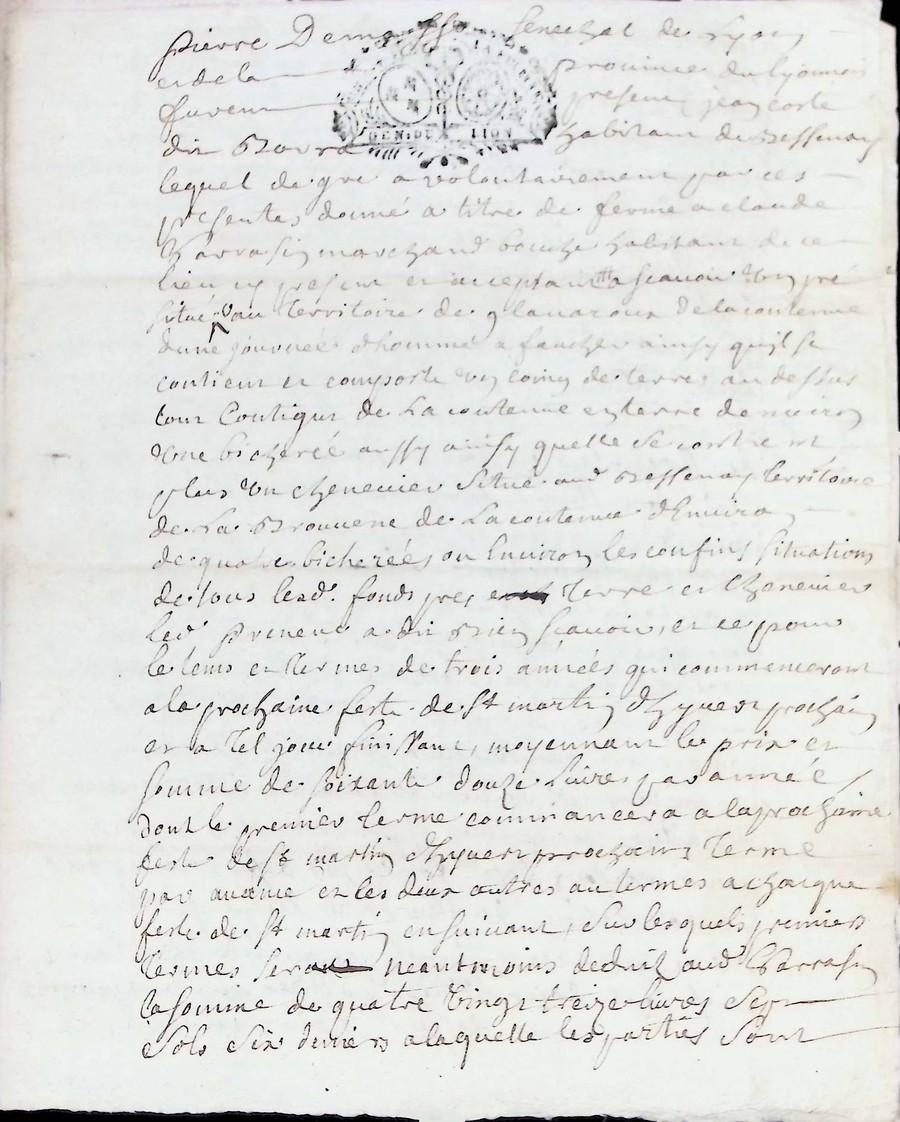 pierre Dema senechal de Lyon
et de la province du lyonnois
fu present jean coste
dit Bavra habitant de Bessenay
GEN. DE LION
lequel de gre a volontairement par ces
presentes donné a titre de ferme a claude
marchand habitant de ce
lieu cy present et acceptant a scavoir un pré
situé au territoire de de la contenue
d'une journée d'homme a faucher ainsy qu'il se
contient et comporte un coing de terre au dessus
tout contigut de La contenue en terre denviron
une bicherée aussy ainsy quelle se contient
plus un chenevier situé aud Bessenay territoire
de La de La contenue d'Environ
de quatre bicherées ou Environ les confins situations
de tous lesd. fonds pres terre et cheneviers
led preneur a dit bien scavoir, et ce pour
le tems et termes de trois années qui commenceront
a la prochaine feste de St martin d'hyver prochain
et a tel jour finissant, moyennant le prix et
somme de soixante douze Livres par année
dont le premier terme commancera a la prochaine
feste de St martin d'hyver prochain terme
par avance et les deux autres au termes a chacque
feste de St martin ensuivant, sur lesquels premiers
termes sera neantmoins deduit aud
la somme de quatre vingt treize livres sept
sols six deniers a laquelle les parties sont